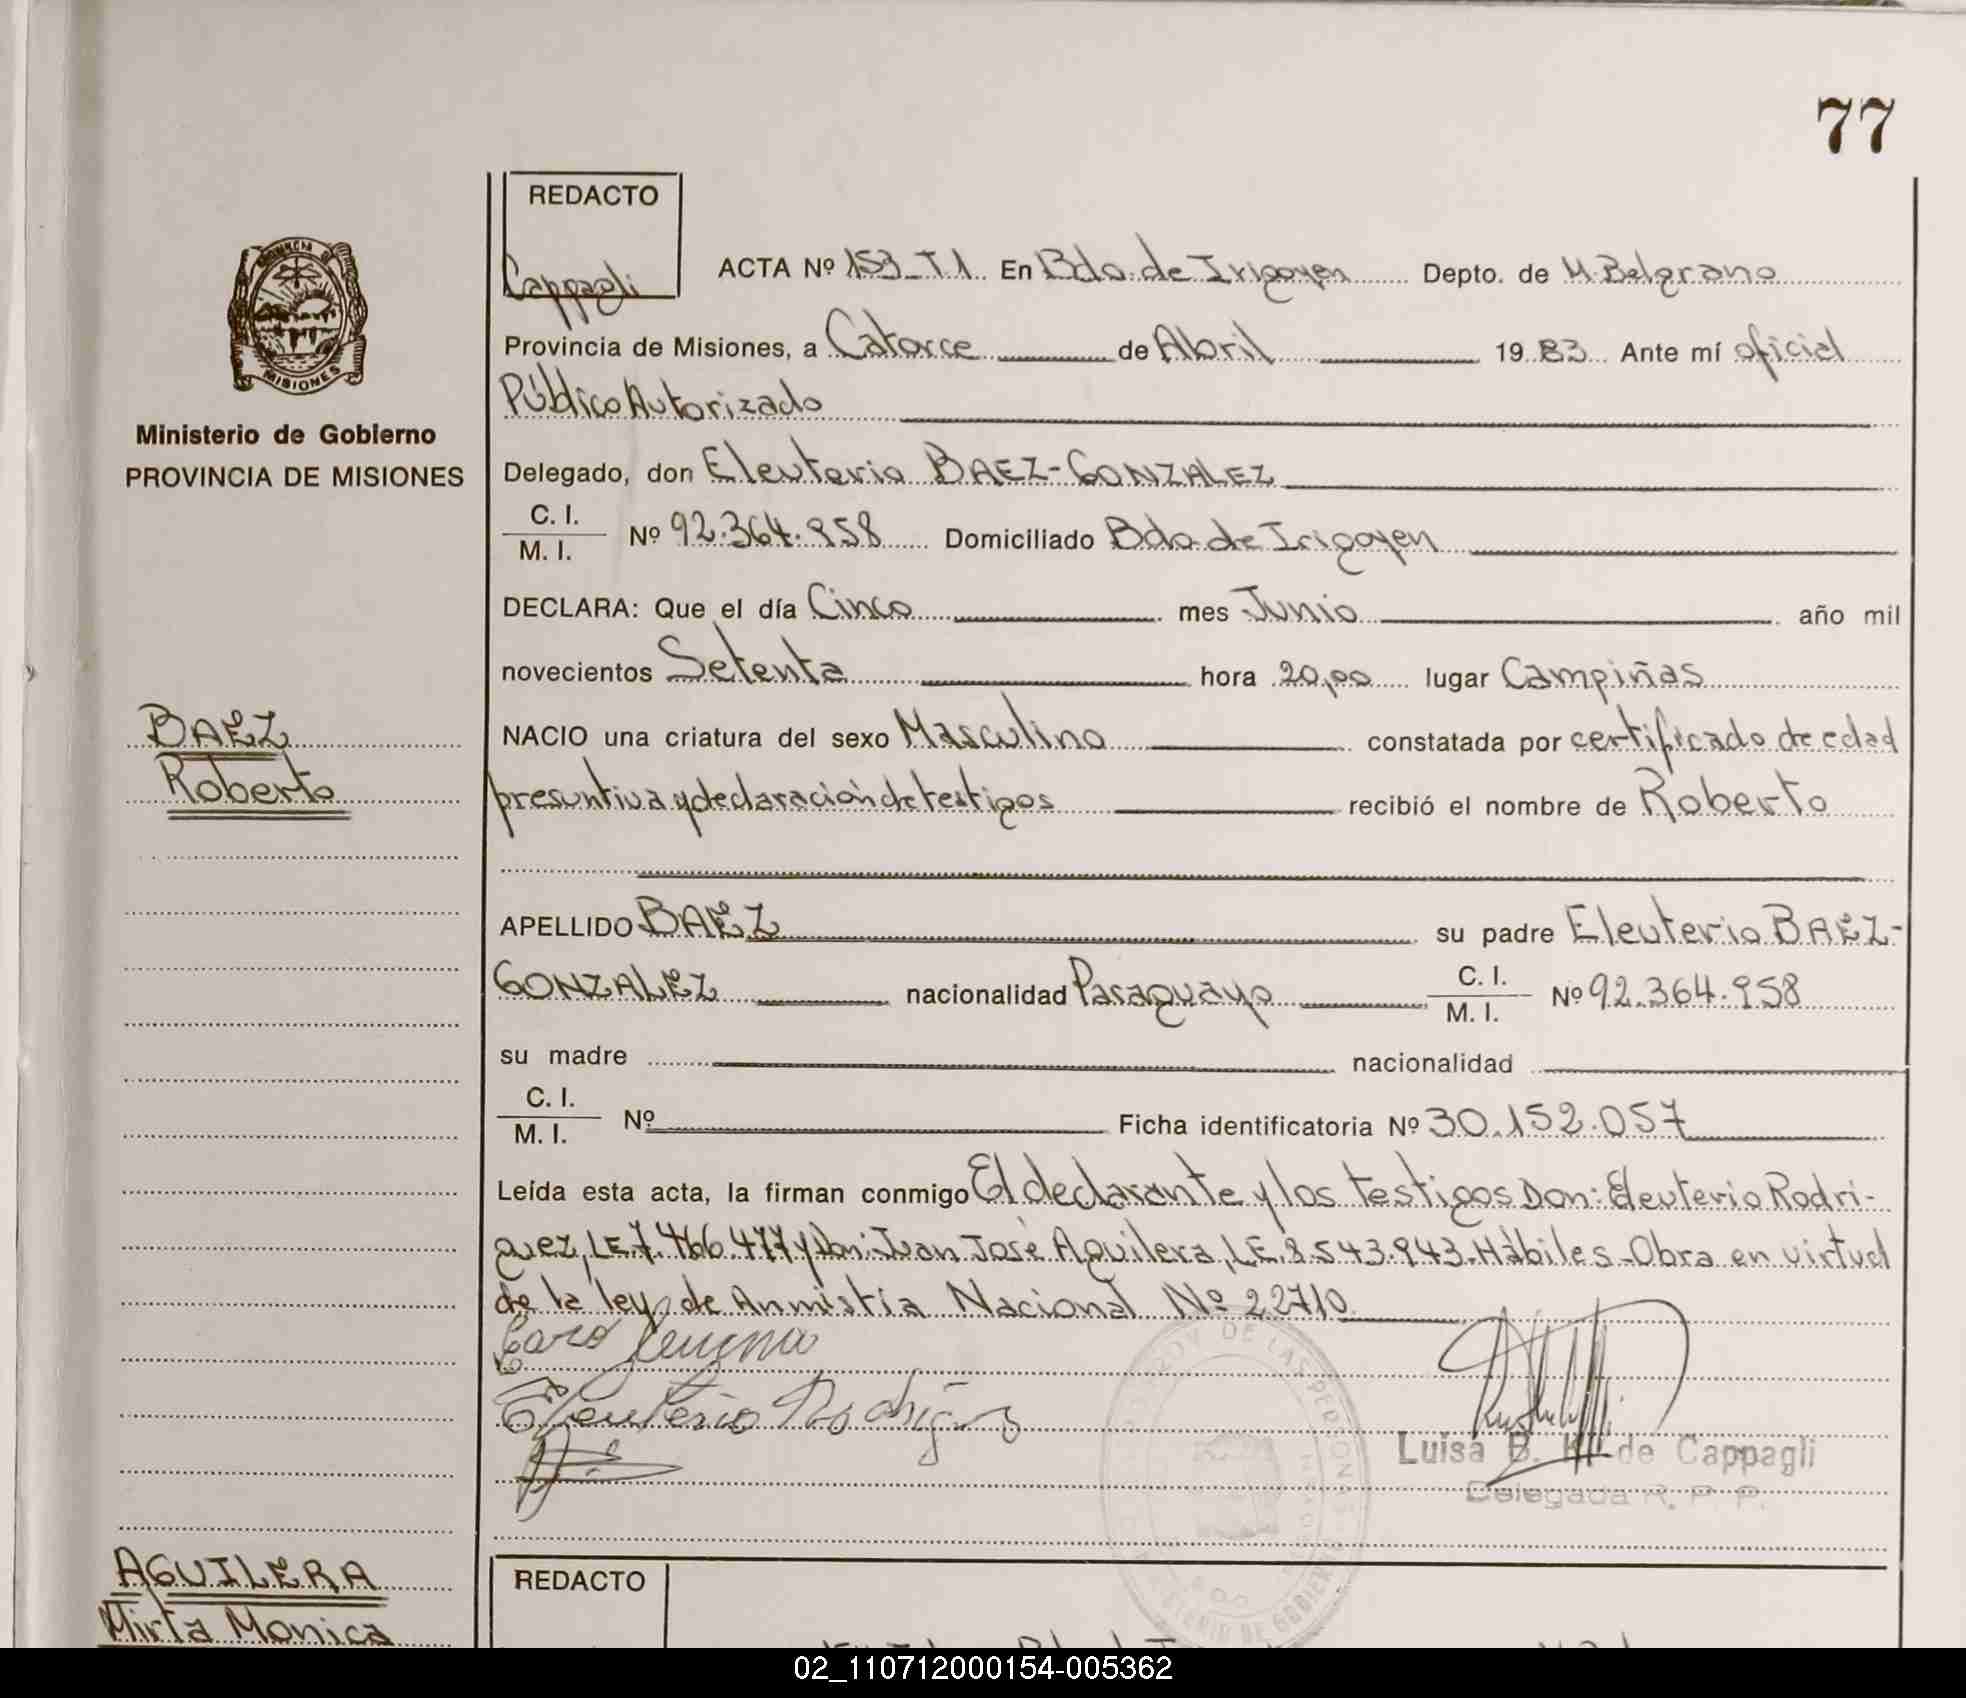 77
REDACTO
Cappagli
ACTA Nº 153-T1 En Bdo. de Irigoyen Depto. de M. Belgrano
Provincia de Misiones, a Catorce de Abril 19 83 Ante mí oficial
Público Autorizado
Delegado, don Eleuterio BAEZ-GONZALEZ
C. I.
M. I. Nº 92.364.958 Domiciliado Bdo de Irigoyen
DECLARA: Que el día Cinco mes Junio año mil
novecientos Setenta hora 20,00 lugar Campiñas
NACIO una criatura del sexo Masculino constatada por certificado de edad
presuntiva y declaración de testigos recibió el nombre de Roberto
APELLIDO BAEZ su padre Eleuterio BAEZ-
GONZALEZ nacionalidad Paraguayo C. I. M. I. Nº 92.364.958
su madre nacionalidad
C. I.
M. I. Nº Ficha identificatoria Nº 30.152.057
Leída esta acta, la firman conmigo El declarante y los testigos Don: Eleuterio Rodri-
guez, LE.7.466.477 y Don: Juan José Aguilera, L.E. 8.543.943. Hábiles-Obra en virtud
de la ley de Anmistía Nacional Nº 22710
Eleuterio Rodrigez
Luisa B. K. de Cappagli
Delegada R. P. P.
DE LAS PERSONAS
MINISTERIO DE GOBIERNO
PROVINCIA DE
MISIONES
Ministerio de Gobierno
PROVINCIA DE MISIONES
BAEZ
Roberto
AGUILERA
Mirta Monica
REDACTO
02_110712000154-005362